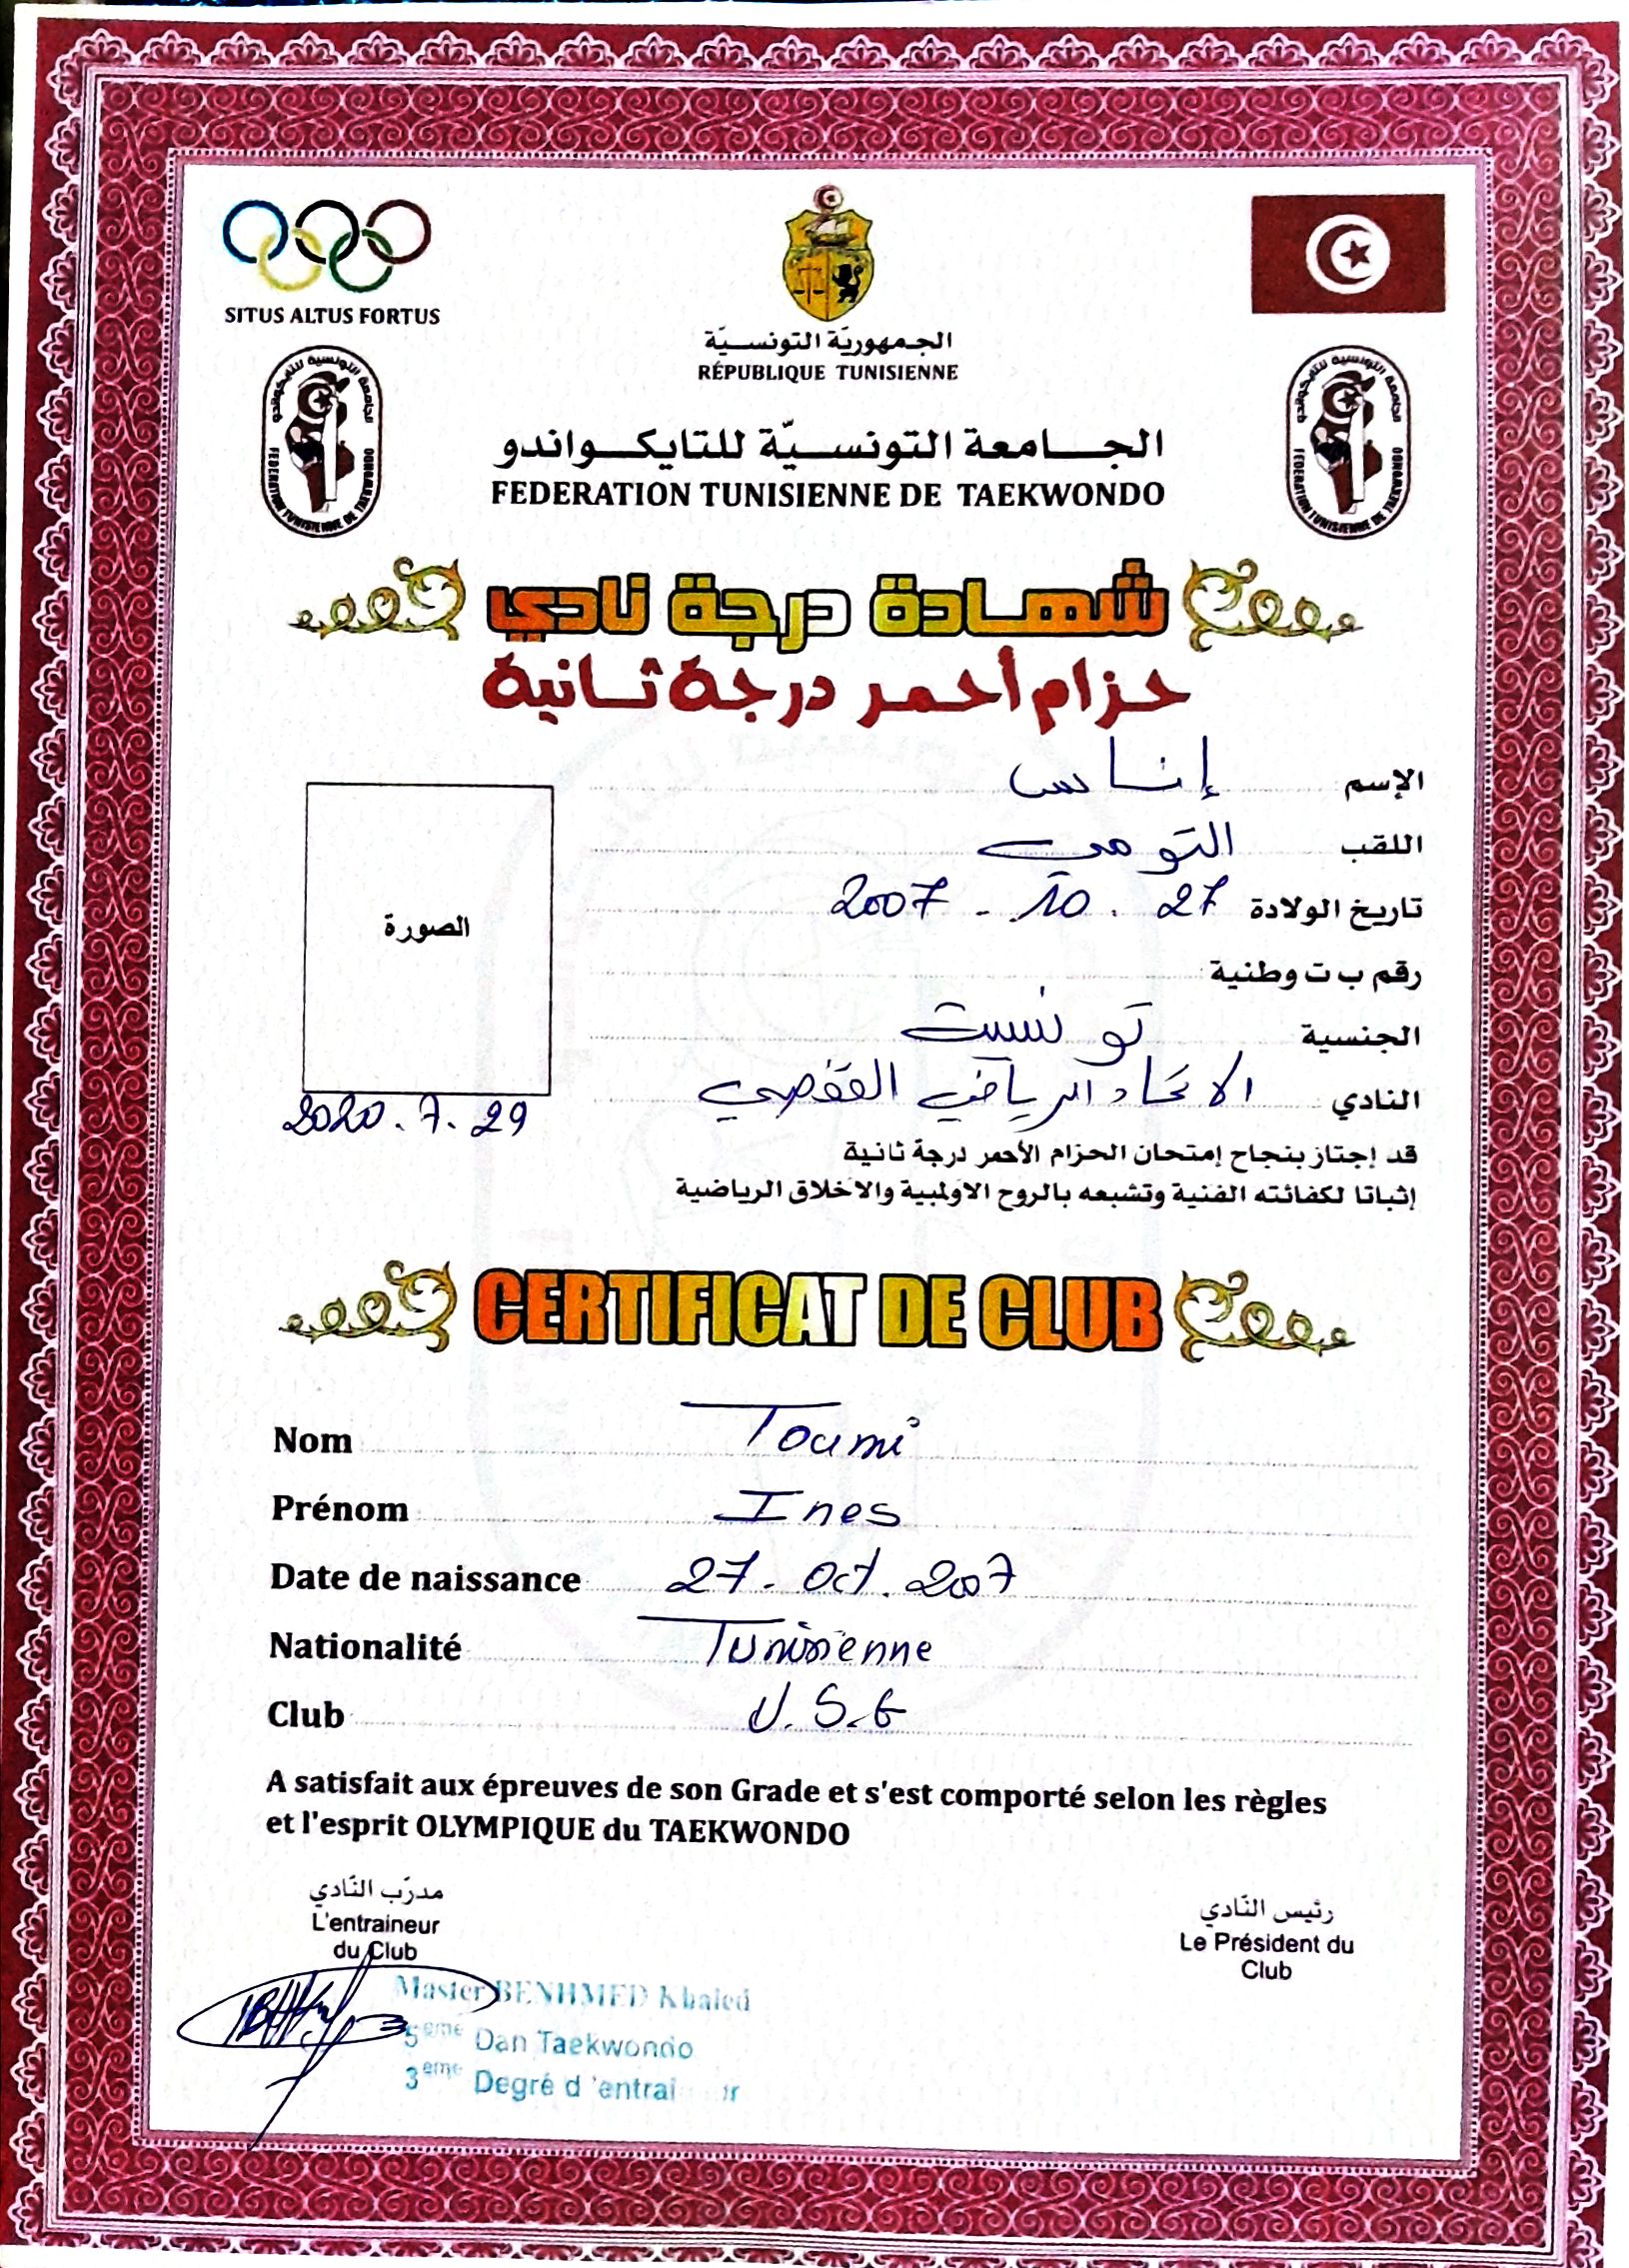 SITUS ALTUS FORTUS
الجمهوريّة التونسـيّة
RÉPUBLIQUE TUNISIENNE
الجامعة التونسية للتايكواندو
FEDERATION TUNISIENNE DE TAEKWONDO
الجامعة التونسية للتايكواندو
FEDERATION TUNISIENNE DE TAEKWONDO
الجـامعة التونسـيّة للتايكـواندو
FEDERATION TUNISIENNE DE TAEKWONDO
شهـادة درجة نادي
حزام أحمر درجة ثـانية
الإسم إناس
اللقب التومي
تاريخ الولادة 27 . 10 - 2007
رقم ب ت وطنية
الجنسية تونسية
النادي الاتحاد الرياضي القفصي
الصورة
2020.7.29
قد إجتاز بنجاح إمتحان الحزام الأحمر درجة ثانية
إثباتا لكفائته الفنية وتشبعه بالروح الاولمبية والاخلاق الرياضية
CERTIFICAT DE CLUB
Nom Toumi
Prénom Ines
Date de naissance 27. Oct. 2007
Nationalité Tunisienne
Club U.S.G
A satisfait aux épreuves de son Grade et s'est comporté selon les règles
et l'esprit OLYMPIQUE du TAEKWONDO
مدرّب النّادي
L'entraineur
du Club
رئيس النّادي
Le Président du
Club
Master BENHMED Khaled
5eme Dan Taekwondo
3eme Degré d'entraineur